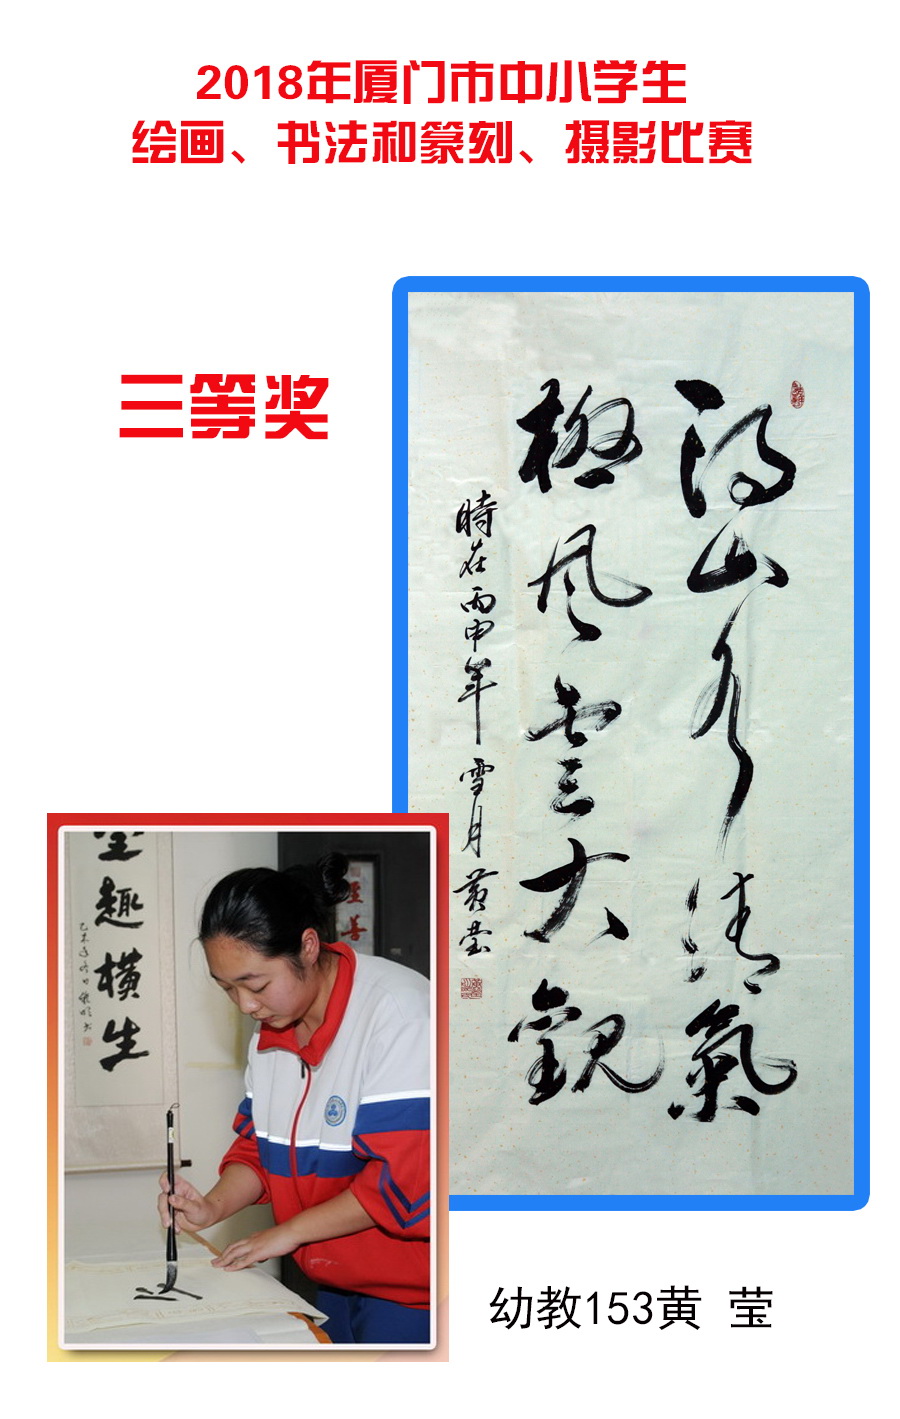 2018年厦门市中小学生
绘画、书法和篆刻、摄影比赛
三等奖
得山水清氣
極風雲大觀
時在丙申年 雪月 黄莹
趣橫生
至善
幼教153黄 莹